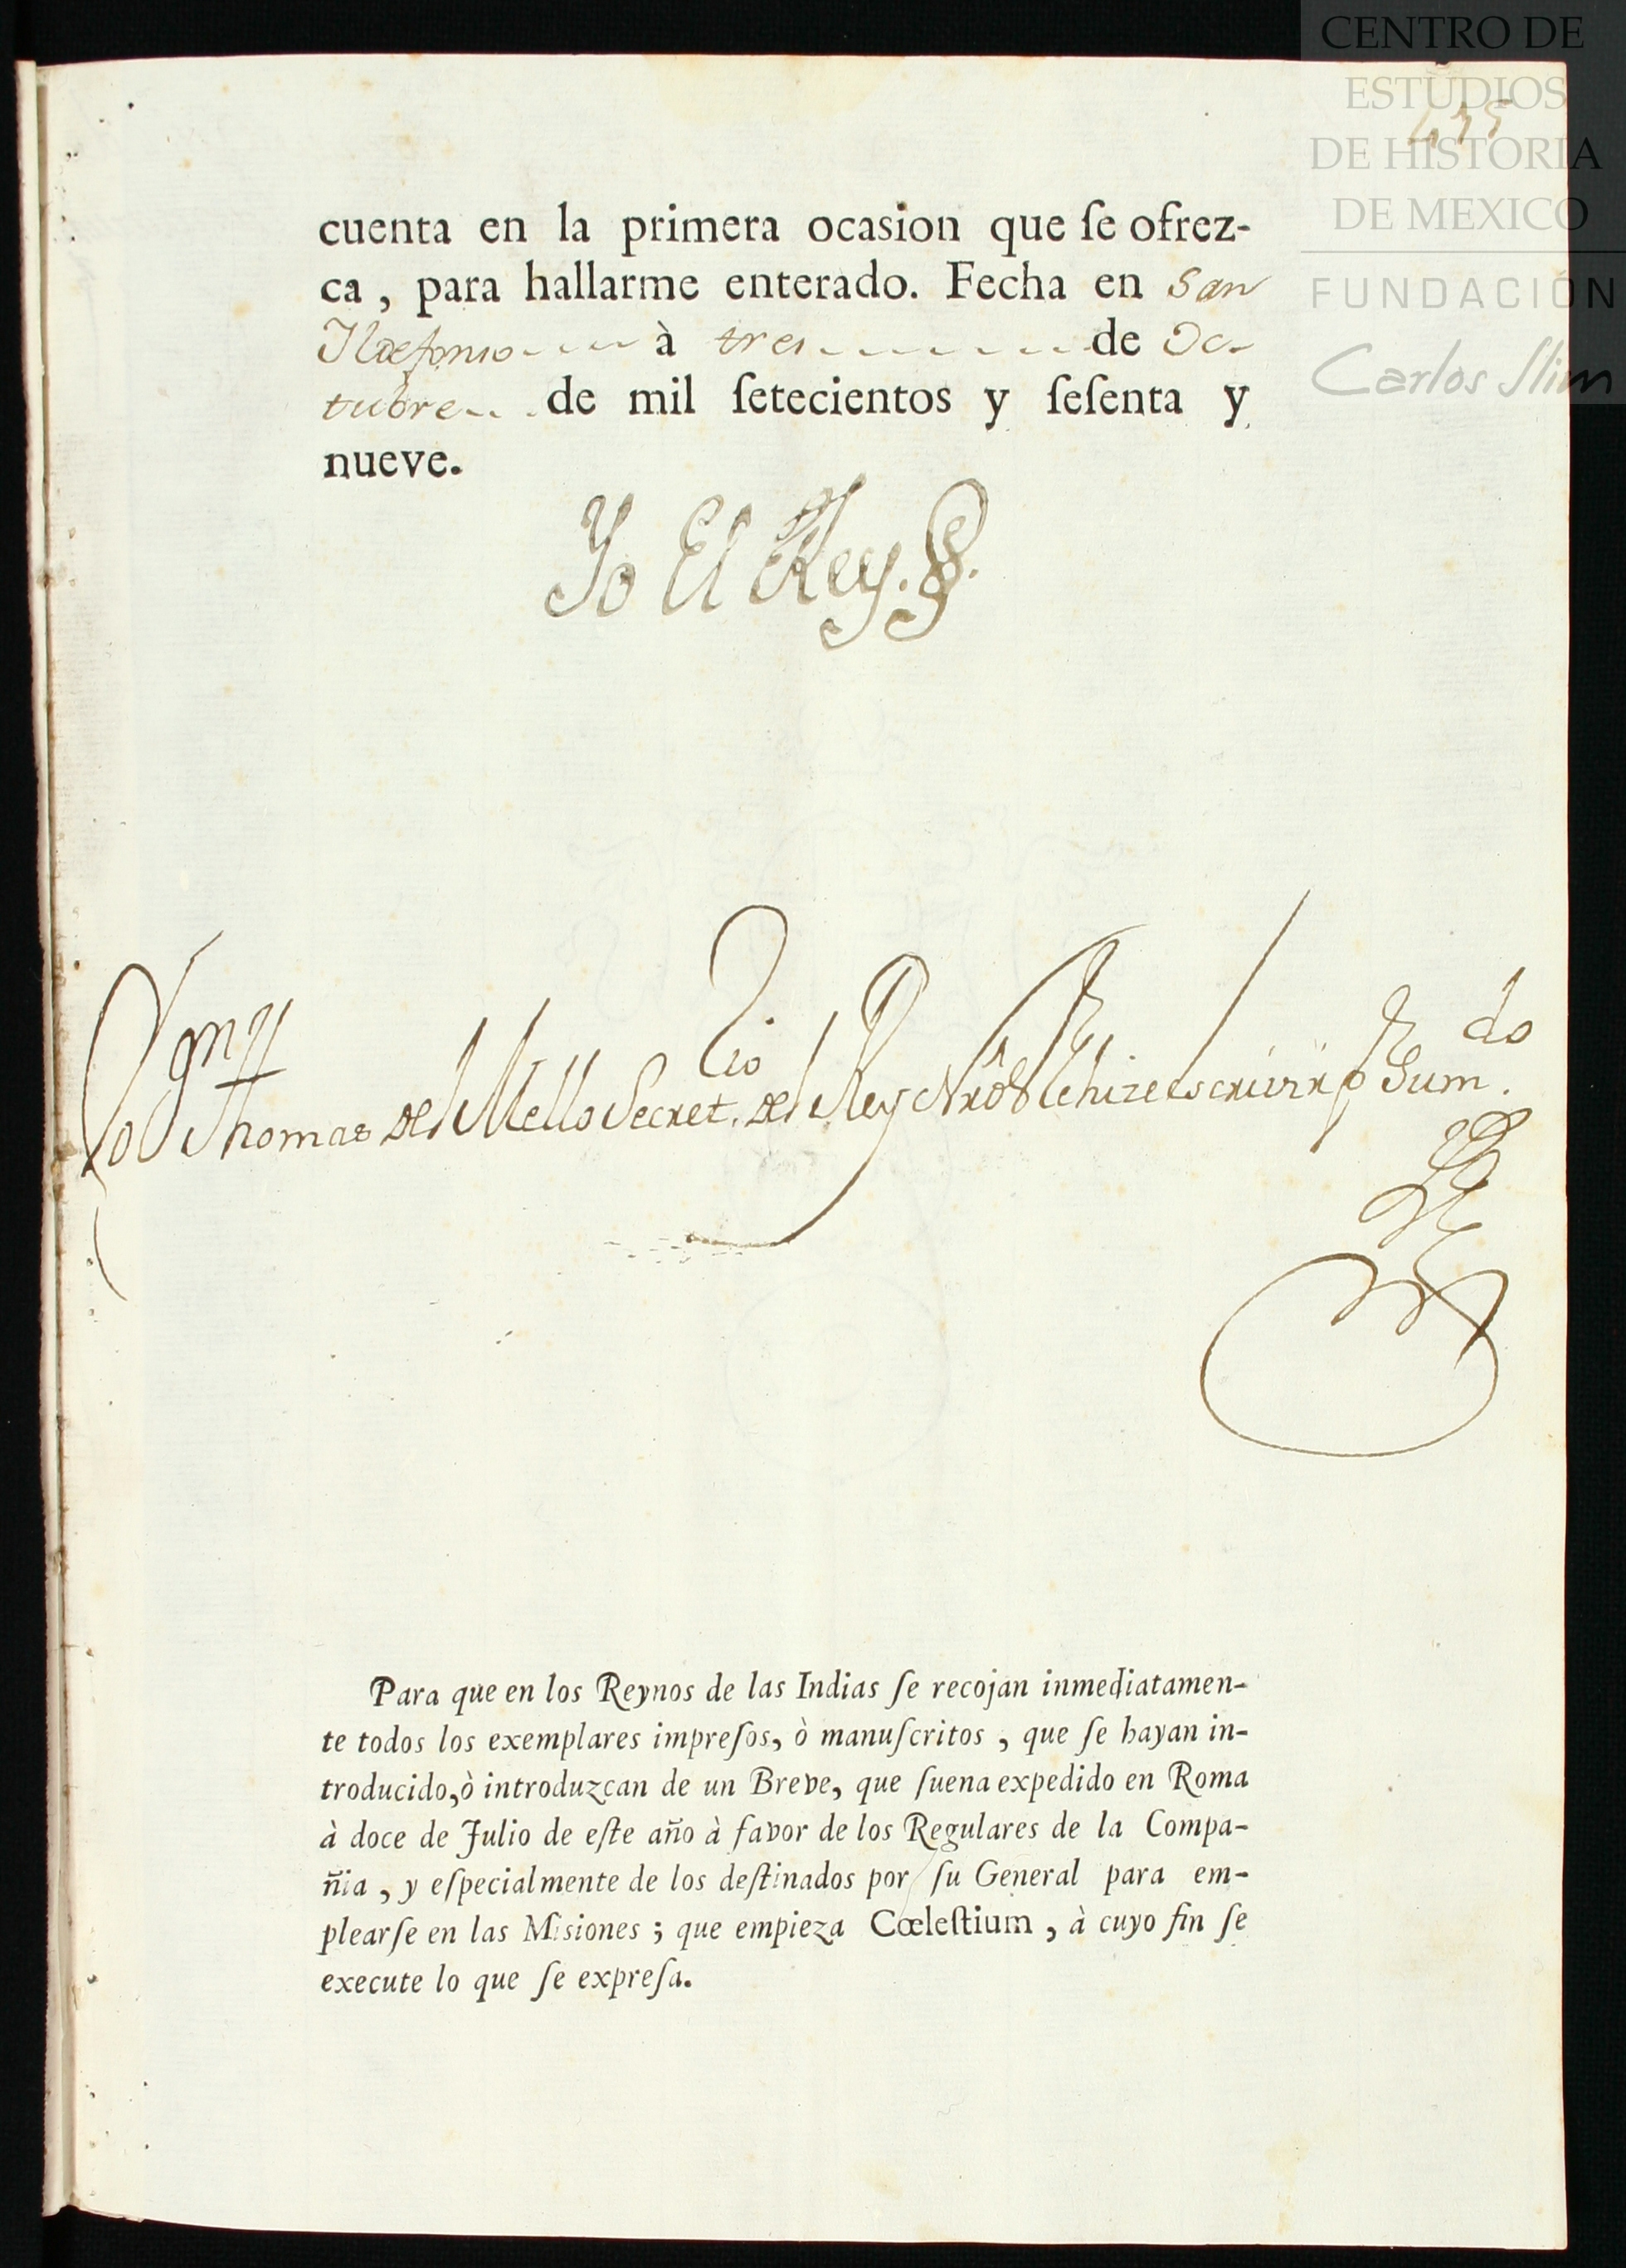 CENTRO DE
ESTUDIOS
DE HISTORIA
DE MEXICO
FUNDACIÓN
Carlos Slim
cuenta en la primera ocasion que ſe ofrez-
ca, para hallarme enterado. Fecha en San
Ildefonso à tres de Oc-
tubre de mil ſetecientos y ſeſenta y
nueve.
Yo El Rey.
Yo Dn Thomas del Mello Secretrio del Rey Nrô Sr le hize escrivir por Su mdo.
Para que en los Reynos de las Indias ſe recojan inmediatamen-
te todos los exemplares impreſos, ò manuſcritos, que ſe hayan in-
troducido, ò introduzcan de un Breve, que ſuena expedido en Roma
à doce de Julio de eſte año à favor de los Regulares de la Compa-
ñia, y eſpecialmente de los deſtinados por ſu General para em-
plearſe en las Misiones; que empieza Cœleſtium, à cuyo fin ſe
execute lo que ſe expreſa.